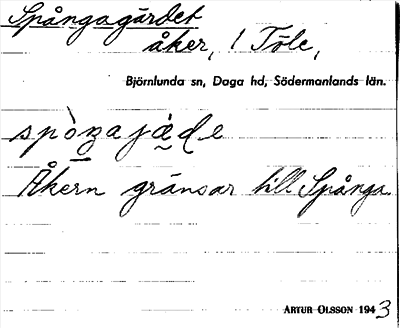 Spångagärdet
åker, 1 Töle,
Björnlunda sn, Daga hd, Södermanlands län.
Åkern gränsar till Spånga
ARTUR OLSSON 1943